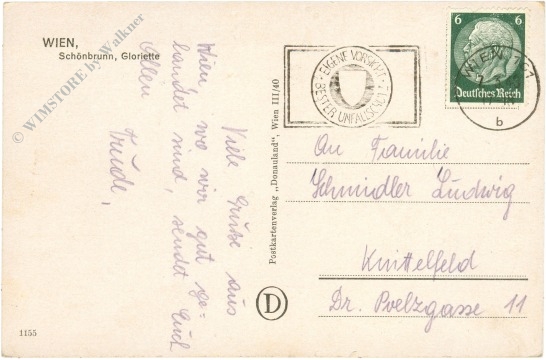 WIEN,
Schönbrunn, Gloriette
© WIMSTORE by Walkner
Viele Grüße aus
Wien wo wir gut ge=
landet sind, sendet Euch
Allen
Trude,
Postkartenverlag „Donauland", Wien III/40
D
1155
EIGENE VORSICHT
BESTER UNFALLSCHUTZ
6 6
Deutsches Reich
WIEN
b
An Familie
Schmidler Ludwig
Knittelfeld
Dr. Poelzgasse 11